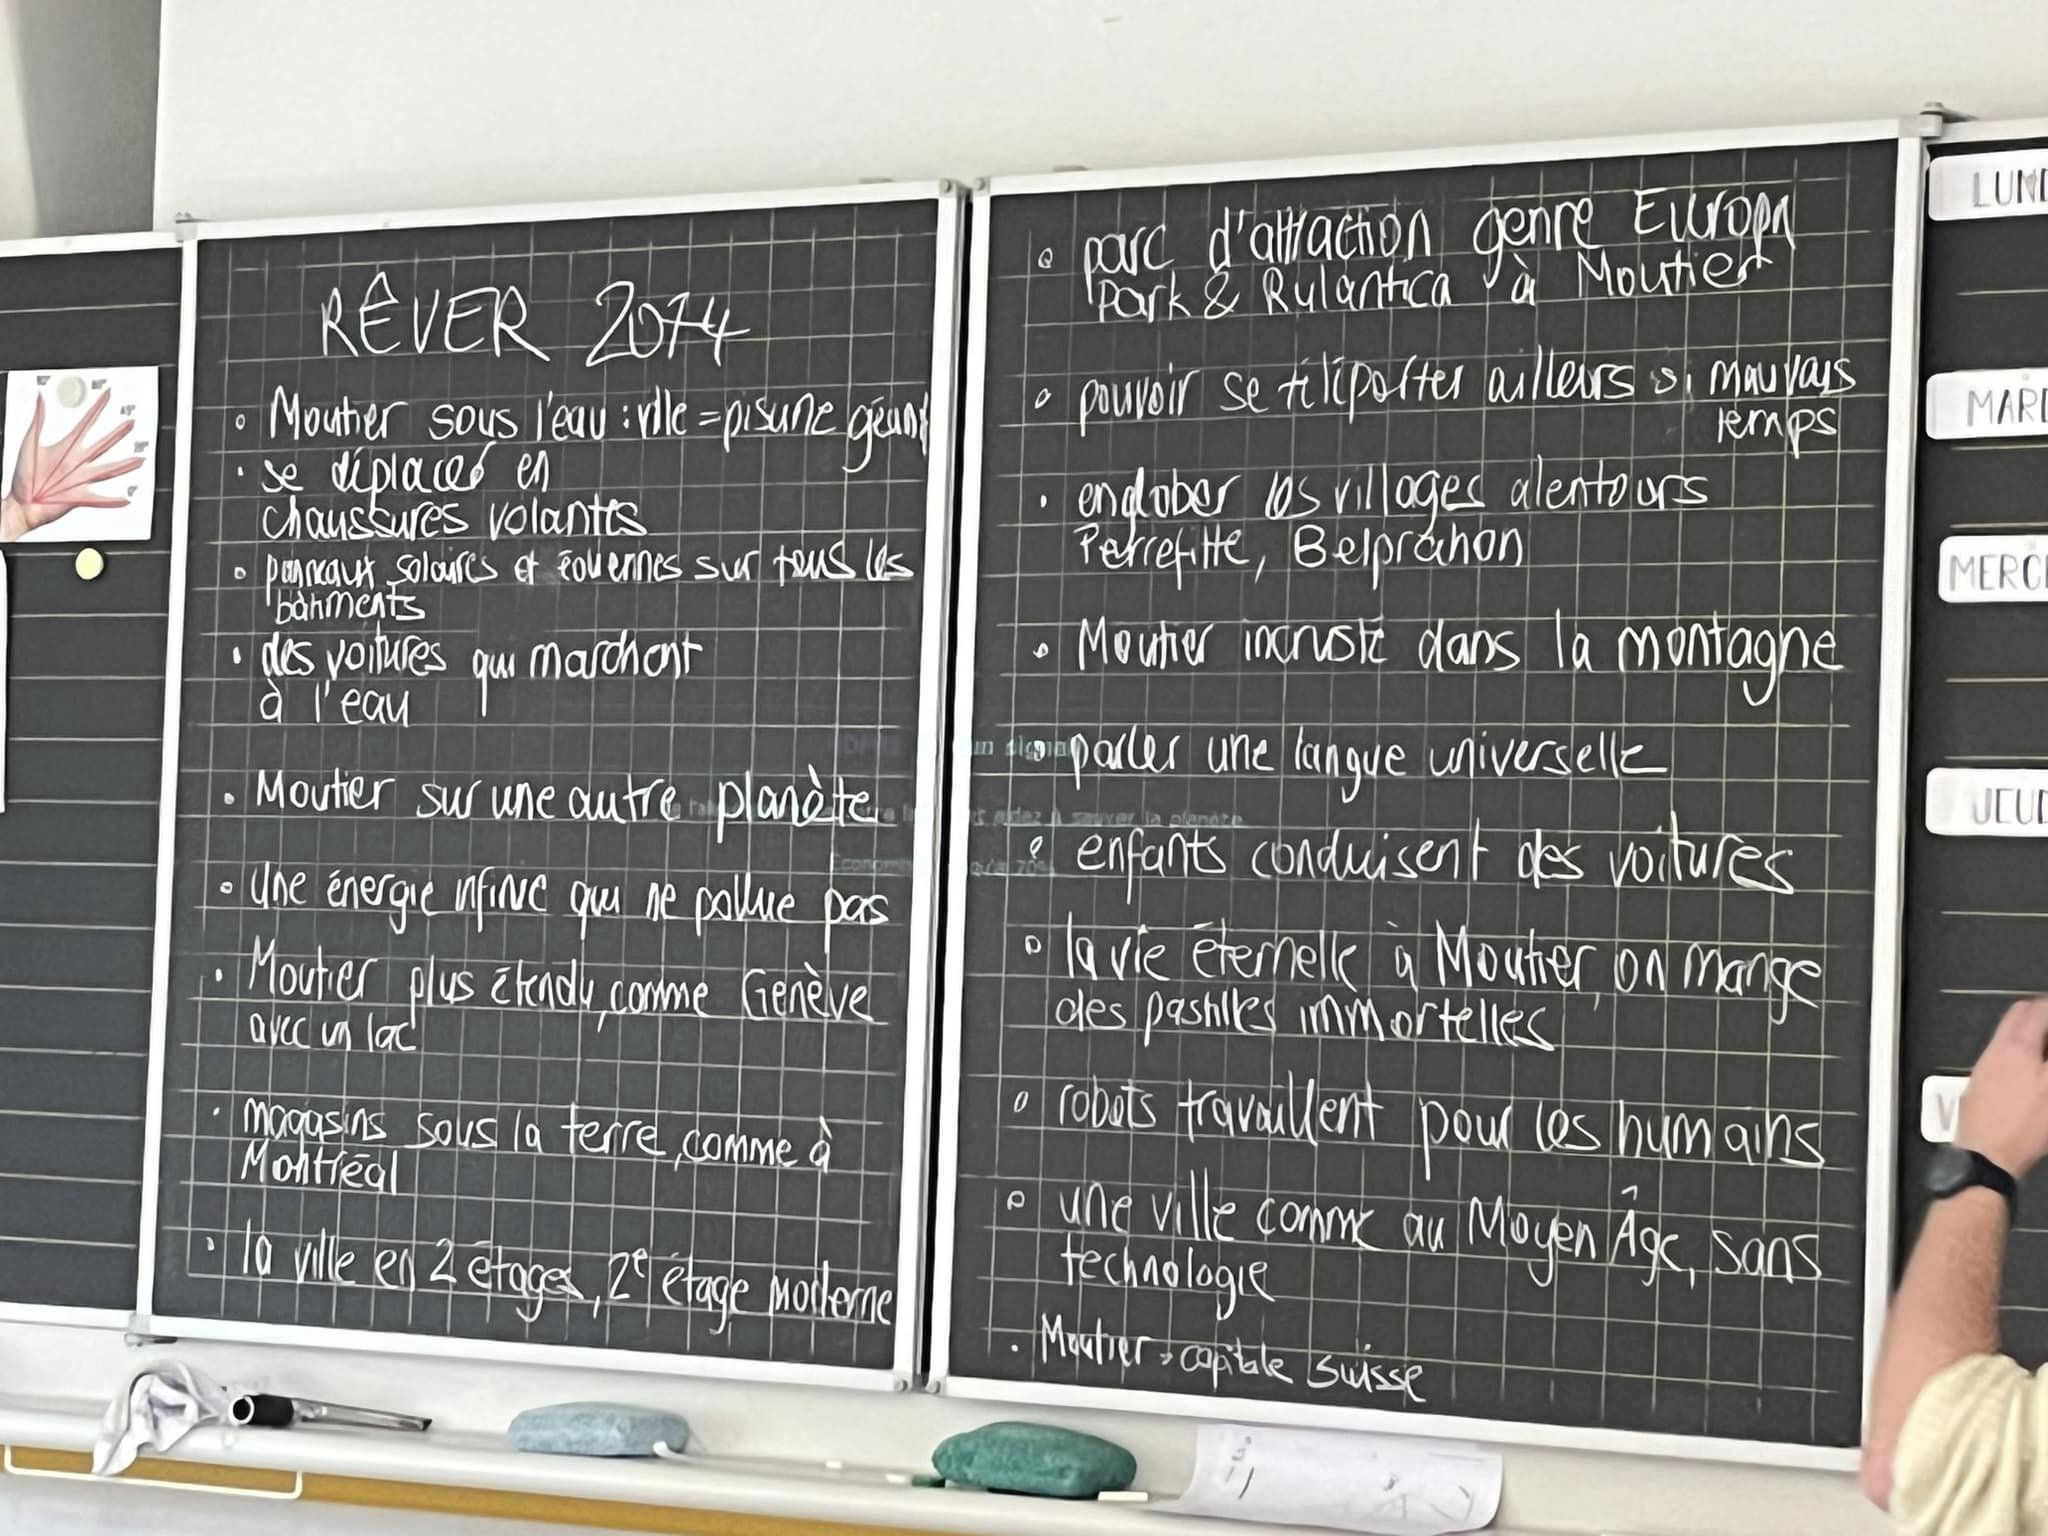 RÊVER 2074
Moutier sous l'eau : ville = piscine géant
se déplacer en
chaussures volantes
panneaux solaires et éoliennes sur tous les
bâtiments
des voitures qui marchent
à l'eau
Moutier sur une autre planète
Une énergie infinie qui ne pollue pas
Moutier plus étendu, comme Genève
avec un lac
magasins sous la terre, comme à
Montréal
la ville en 2 étages, 2e étage moderne
parc d'attraction genre Europa
Park & Rulantica à Moutier
pouvoir se téléporter ailleurs si mauvais
temps
englober les villages alentours
Perrefitte, Belprahon
Moutier incrusté dans la montagne
parler une langue universelle
enfants conduisent des voitures
la vie éternelle à Moutier, on mange
des pastilles immortelles
robots travaillent pour les humains
une ville comme au Moyen Âge, sans
technologie
Moutier = capitale suisse
LUND
MARD
MERCR
JEUD
V